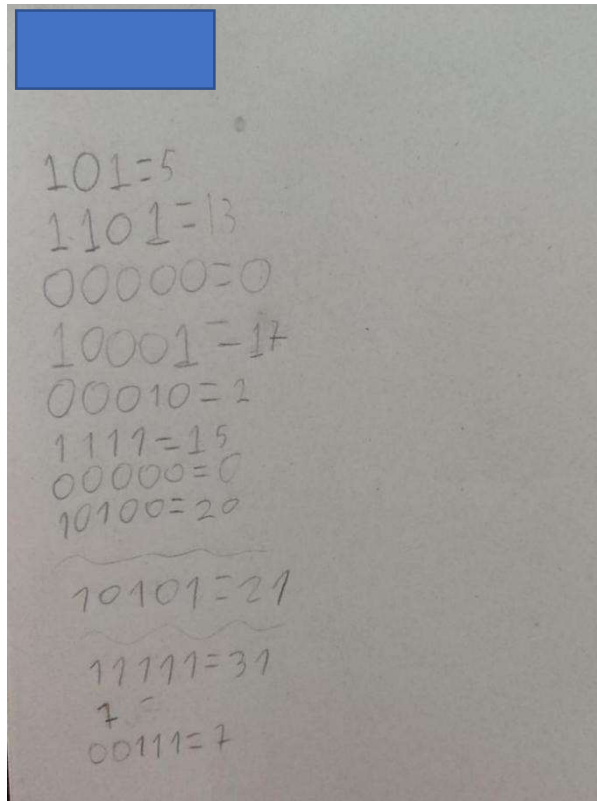 101=5
1101=13
00000=0
10001=17
00010=2
1111=15
00000=0
10100=20
10101=21
11111=31
7=
00111=7